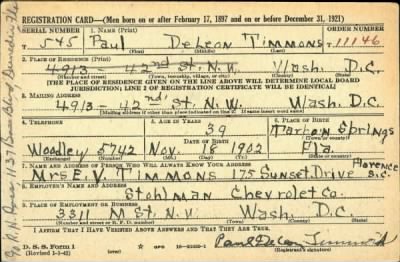 REGISTRATION CARD—(Men born on or after February 17, 1897 and on or before December 31, 1921)
SERIAL NUMBER 1. NAME (Print) ORDER NUMBER
T 545 Paul DeLeon Timmons T11146
(First) (Middle) (Last)
2. PLACE OF RESIDENCE (Print)
4913 - 42nd St. N.W. Wash. D.C.
(Number and street) (Town, township, village, or city) (County) (State)
[THE PLACE OF RESIDENCE GIVEN ON THE LINE ABOVE WILL DETERMINE LOCAL BOARD
JURISDICTION; LINE 2 OF REGISTRATION CERTIFICATE WILL BE IDENTICAL]
3. MAILING ADDRESS
4913 - 42nd St. N.W. Wash. D.C.
(Mailing address if other than place indicated on line 2. If same insert word same)
4. TELEPHONE 5. AGE IN YEARS 6. PLACE OF BIRTH
39 Tarpon Springs
DATE OF BIRTH
Woodley 5742 Nov. 18 1902 Fla.
(Exchange) (Number) (Mo.) (Day) (Yr.) (State or country)
7. NAME AND ADDRESS OF PERSON WHO WILL ALWAYS KNOW YOUR ADDRESS Florence
Mrs E.V. Timmons 175 Sunset Drive S.C.
8. EMPLOYER'S NAME AND ADDRESS
Stohlman Chevrolet Co.
9. PLACE OF EMPLOYMENT OR BUSINESS
3311 M St. N.W. Wash. D.C.
(Number and street or R. F. D. number) (Town) (County) (State)
I AFFIRM THAT I HAVE VERIFIED ABOVE ANSWERS AND THAT THEY ARE TRUE.
D. S. S. Form 1
(Revised 1-1-42) (over) GPO Paul DeLeon Timmons